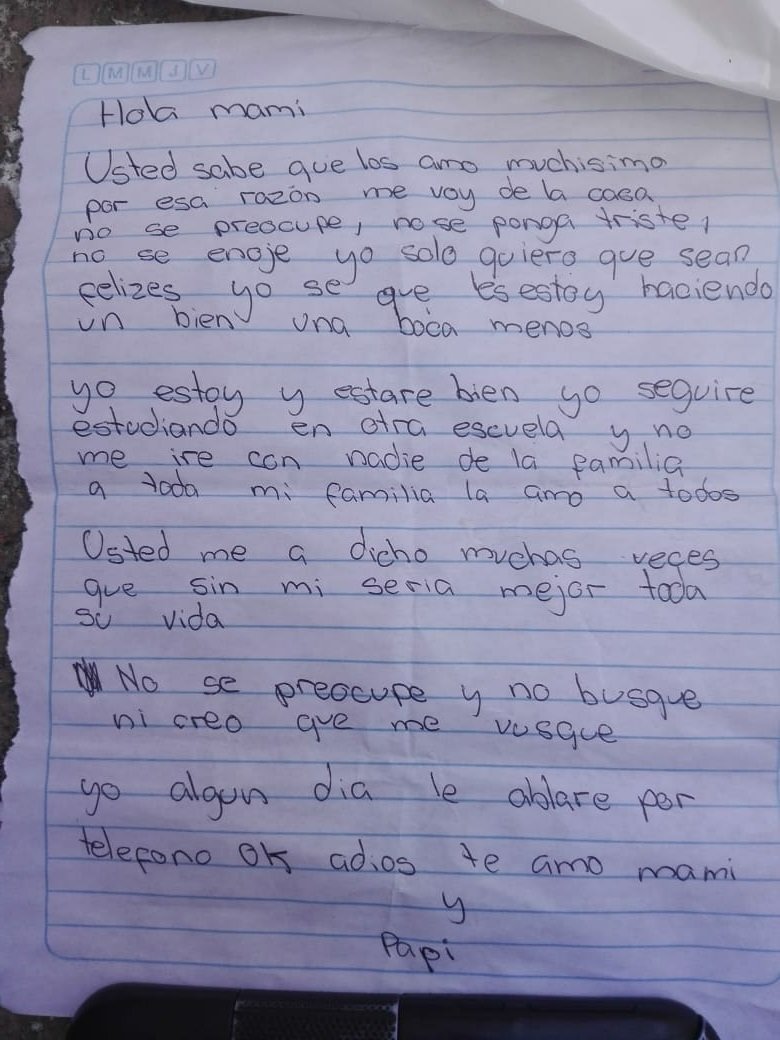 L M M J V
Hola mami
Usted sabe que los amo muchisimo
por esa razón me voy de la casa
no se preocupe, no se ponga triste,
no se enoje yo solo quiero que sean
felizes yo se que les estoy haciendo
un bien una boca menos
yo estoy y estare bien yo seguire
estudiando en otra escuela y no
me ire con nadie de la familia
a toda mi familia la amo a todos
Usted me a dicho muchas veces
que sin mi seria mejor toda
su vida
No se preocupe y no busque
ni creo que me vusque
yo algun dia le ablare por
telefono OK adios te amo mami
y
Papi